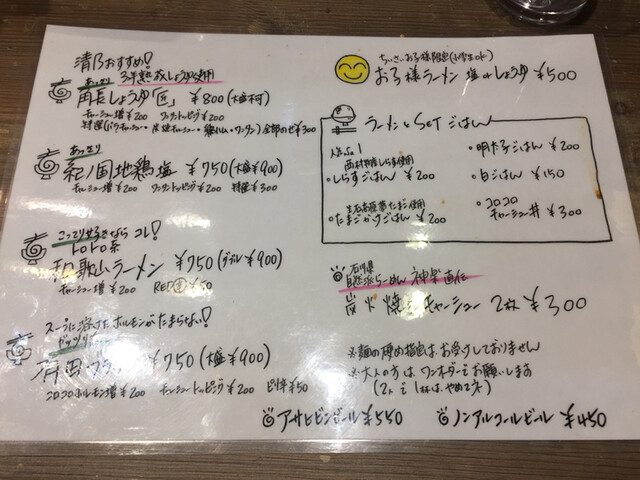 清乃おすすめ!
あっさり 3年熟成しょうゆ使用
角長しょうゆ「匠」 ¥800(大盛不可)
チャーシュー増 ¥200 ワンタントッピング ¥200
全部のせ ¥300
あっさり
紀ノ国地鶏塩 ¥750(大盛¥900)
チャーシュー増 ¥200 ワンタントッピング ¥200 特選 ¥300
こってり好きなら コレ!
トロトロ系
和歌山ラーメン ¥750(ダブル¥900)
チャーシュー増 ¥200 RED ¥50
スープに溶けたホルモンがたまらない!
ガッツリ
¥750(大盛¥900)
コロコロホルモン増 ¥200 チャーシュートッピング ¥200 ¥50
ちいさいお子様限定(小学生OK)
お子様ラーメン 塩orしょうゆ ¥500
ラーメンとSETごはん
人気No.1
しらす使用
・しらすごはん ¥200
・明太子ごはん ¥200
・白ごはん ¥150
たまご使用
・たまごかけごはん ¥200
・コロコロチャーシュー丼 ¥300
石川県
自然派らーめん 神楽 直伝
炭火焼きチャーシュー 2枚 ¥300
※麺の硬め指定はお受けしておりません
※大人の方は ワンオーダーでお願いします
(2人で1杯は、やめてネ)
アサヒビンビール ¥550 ノンアルコールビール ¥450